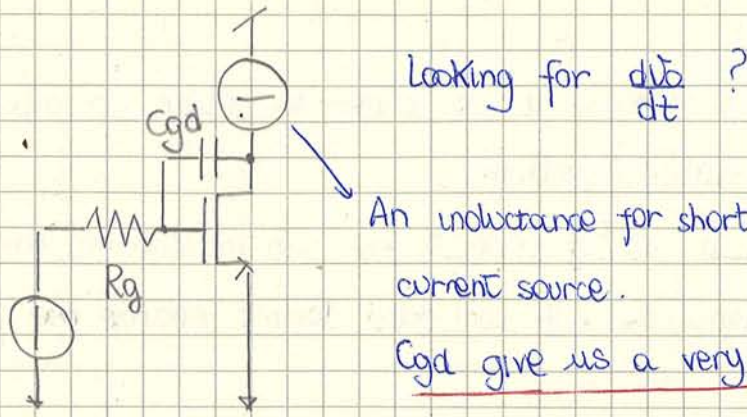 Looking for dVo/dt ?
Cgd
An inductance for short
Rg
current source.
Cgd give us a very